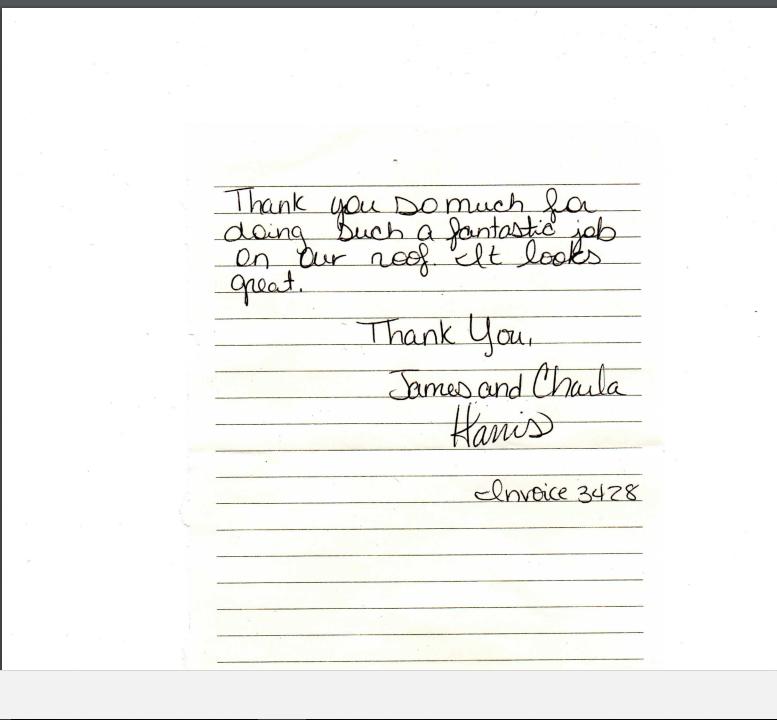 Thank you so much for
doing such a fantastic job
on our roof. It looks
great.
Thank You,
James and Charla
Harris
Invoice 3428